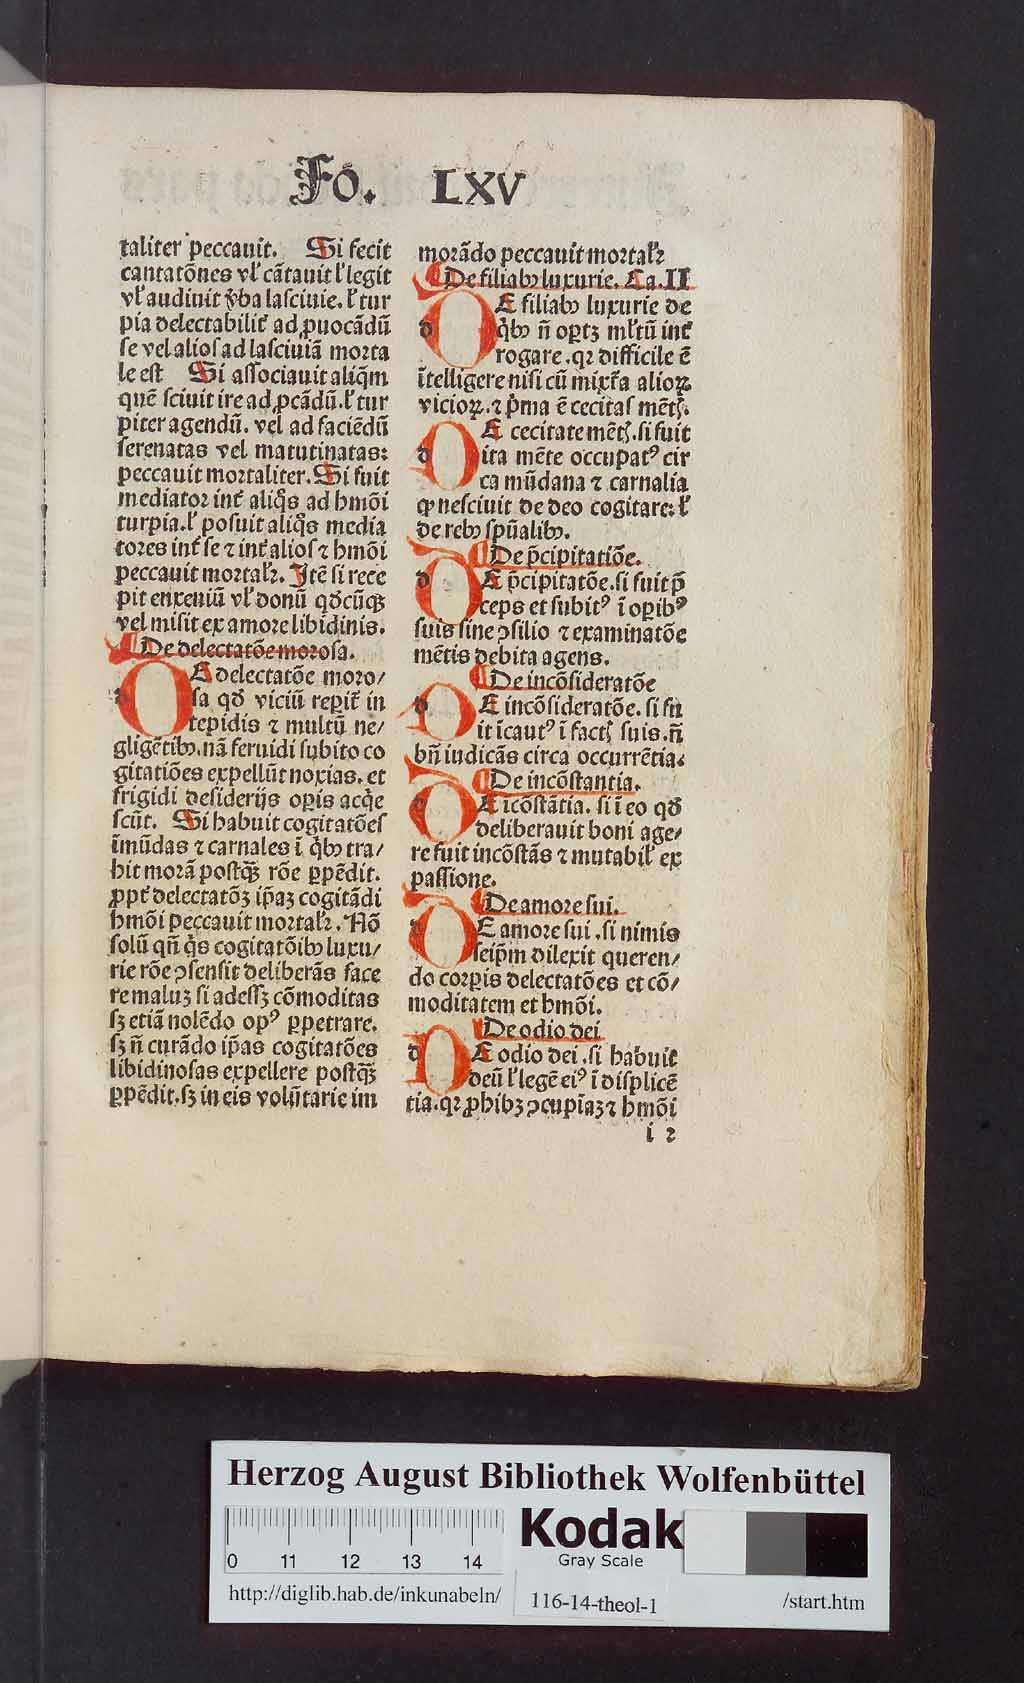 Fo. LXV
taliter peccauit. Si fecit
cantatōnes vl̕ cātauit l̕ legit
vl̕ audiuit v̄ba lasciuie. l̕ tur
pia delectabilit̕ ad ꝓuocādū
se vel alios ad lasciuiā morta
le est Si associauit aliq̄m
quē sciuit ire ad ꝓcādū. l̕ tur
piter agendū. vel ad faciēdū
serenatas vel matutinatas:
peccauit mortaliter. Si fuit
mediator int̕ aliq̄s ad hmōi
turpia. l̕ posuit aliq̄s media
tores int̕ se ⁊ int̕ alios ⁊ hmōi
peccauit mortalr̕. Itē si rece
pit enxeniū vl̕ donū qd̕cūqꝫ
vel misit ex amore libidinis.
¶ De delectatōe morosa.
DE delectatōe moro/
sa qd̕ viciū reperit̕ in
tepidis ⁊ multū ne/
gligētibꝰ. nā feruidi subito co
gitatiōes expellūt noxias. et
frigidi desiderijs oꝑis acq̄e
scūt. Si habuit cogitatōes
īmūdas ⁊ carnales ī q̄bꝰ tra/
hit morā postqꝫ rōe ꝑpēdit.
ꝓpt̕ delectatōꝫ ip̄aꝫ cogitādi
hmōi peccauit mortalr̕. Nō
solū qn̄ q̄s cogitatōibꝰ luxu/
rie rōe ꝯsensit deliberās face
re maluꝫ si adessꝫ cōmoditas
sꝫ etiā nolēdo opꝰ ꝑpetrare.
sꝫ n̄ curādo ip̄as cogitatōes
libidinosas expellere postqꝫ
ꝑpēdit. sꝫ in eis volūtarie im
morādo peccauit mortalr̕
¶ De filiabꝰ luxurie. Ca. II
d DE filiabꝰ luxurie de
q̄bꝰ n̄ oꝑtꝫ ml̕tū int̕
rogare. qꝛ difficile ē
ītelligere nisi cū mixt̕a alioꝝ
vicioꝝ. ⁊ p̄ma ē cecitas mēt̕.
d DE cecitate mēt̕. si fuit
ita mēte occupatꝰ cir
ca mūdana ⁊ carnalia
ꝙ nesciuit de deo cogitare: l̕
de rebꝰ spūalibꝰ.
¶ De p̄cipitatiōe.
d DE p̄cipitatōe. si fuit p̄
ceps et subitꝰ ī oꝑibꝰ
suis sine ꝯsilio ⁊ examinatōe
mētis debita agens.
¶ De incōsideratōe
d DE incōsideratōe. si fu
it īcautꝰ ī fact̕ suis. n̄
bn̄ iudicās circa occurrētia.
¶ De incōstantia.
d DE icōstātia. si ī eo qd̕
deliberauit boni age/
re fuit incōstās ⁊ mutabil̕ ex
passione.
¶ De amore sui.
d DE amore sui. si nimis
seip̄m dilexit queren/
do corꝑis delectatōes et cō/
moditatem et hmōi.
¶ De odio dei
d DE odio dei. si habuit
deū l̕ legē eiꝰ ī displicē
tia. qꝛ ꝓhibꝫ ꝯcupīaꝫ ⁊ hmōi
i 2
Herzog August Bibliothek Wolfenbüttel
0 11 12 13 14
Kodak
Gray Scale
http://diglib.hab.de/inkunabeln/ 116-14-theol-1 /start.htm